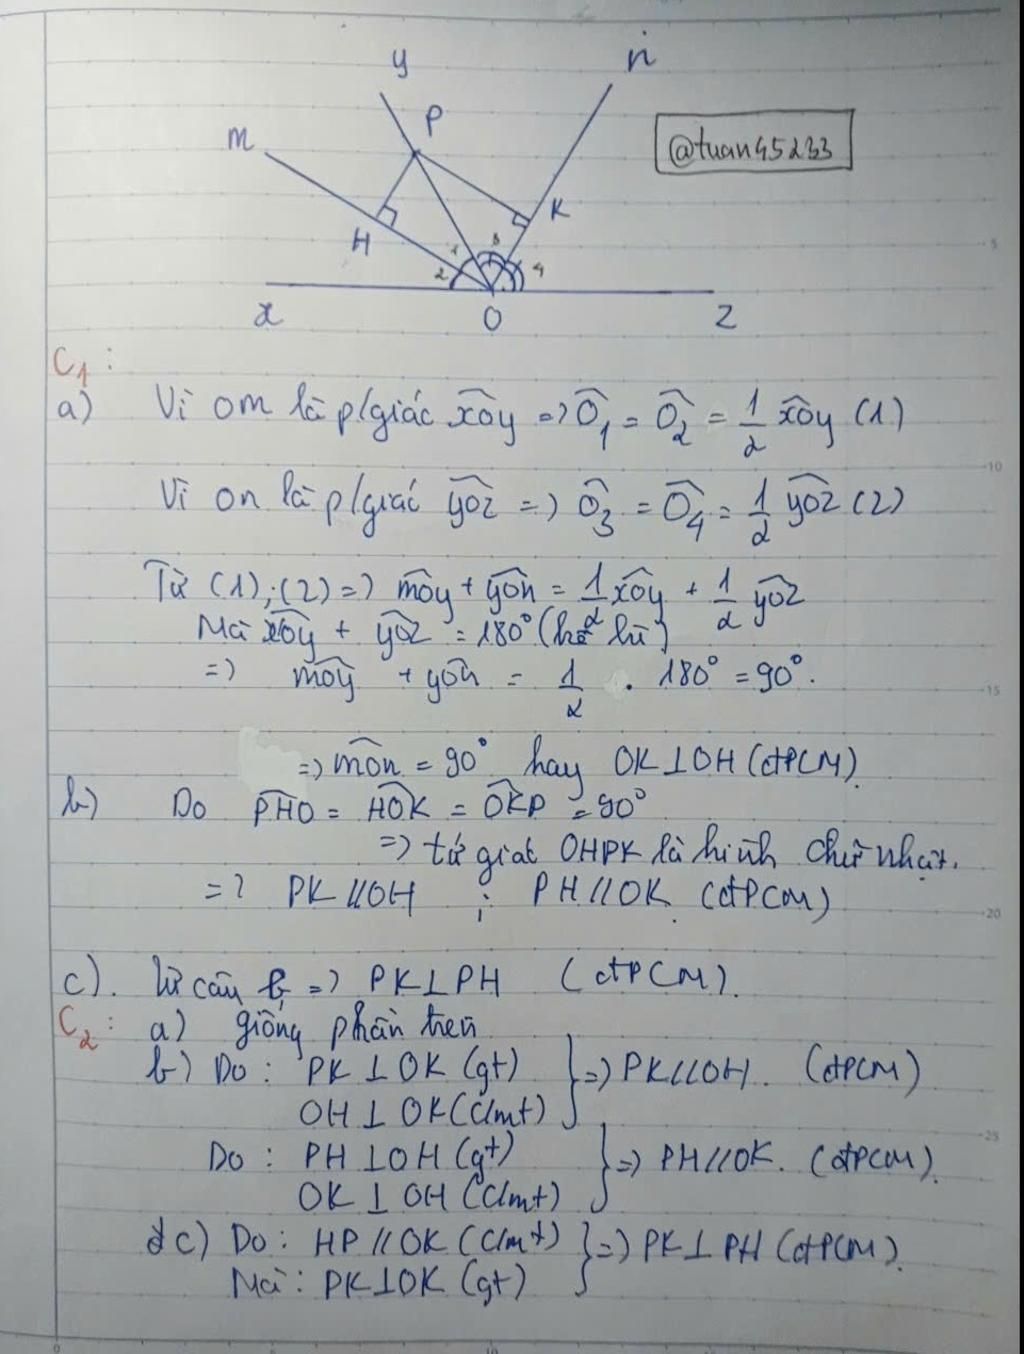 y
n
P
m
@tuan45233
K
H
1
3
2
4
x
O
z
C₁:
a) Vì om là p/giác x̂oy => Ô₁ = Ô₂ = 1/2 x̂oy (1)
Vì on là p/giác ŷoz => Ô₃ = Ô₄ = 1/2 ŷoz (2)
Từ (1); (2) => m̂oy + ŷon = 1/2 x̂oy + 1/2 ŷoz
Mà x̂oy + ŷoz = 180° (kề bù)
=> m̂oy + ŷon = 1/2 . 180° = 90°.
=> m̂on = 90° hay OK⊥OH (đPCM).
b) Do P̂HO = ĤOK = ÔKP = 90°
=> tứ giác OHPK là hình chữ nhật.
=> PK//OH ; PH//OK (đPCM)
c). từ câu b => PK⊥PH (đPCM).
C₂: a) giống phần trên
b) Do: PK⊥OK (gt) } => PK//OH. (đPCM)
OH⊥OK (Cmt)
Do: PH⊥OH (gt) } => PH//OK. (đPCM).
OK⊥OH (Cmt)
c) Do: HP//OK (Cmt) } => PK⊥PH (đPCM).
Mà: PK⊥OK (gt)